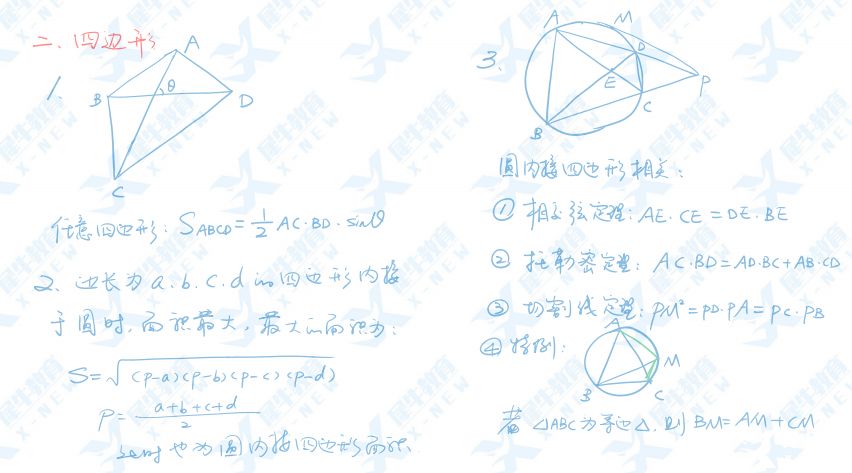 二、四边形
1.
A
B
θ
D
C
任意四边形: S_ABCD = 1/2 AC·BD·sinθ
2、边长为a.b.c.d的四边形内接
于圆时,面积最大,最大的面积为:
S=√(p-a)(p-b)(p-c)(p-d)
P= a+b+c+d / 2
此时也为圆内接四边形面积.
3.
A
M
D
E
P
B
C
圆内接四边形相关:
① 相交弦定理: AE·CE=DE·BE
② 托勒密定理: AC·BD=AD·BC+AB·CD
③ 切割线定理: PM²=PD·PA=PC·PB
④ 特例:
A
M
B
C
若 △ABC为等边△, 则 BM=AM+CM
犀牛教育
X-NEW